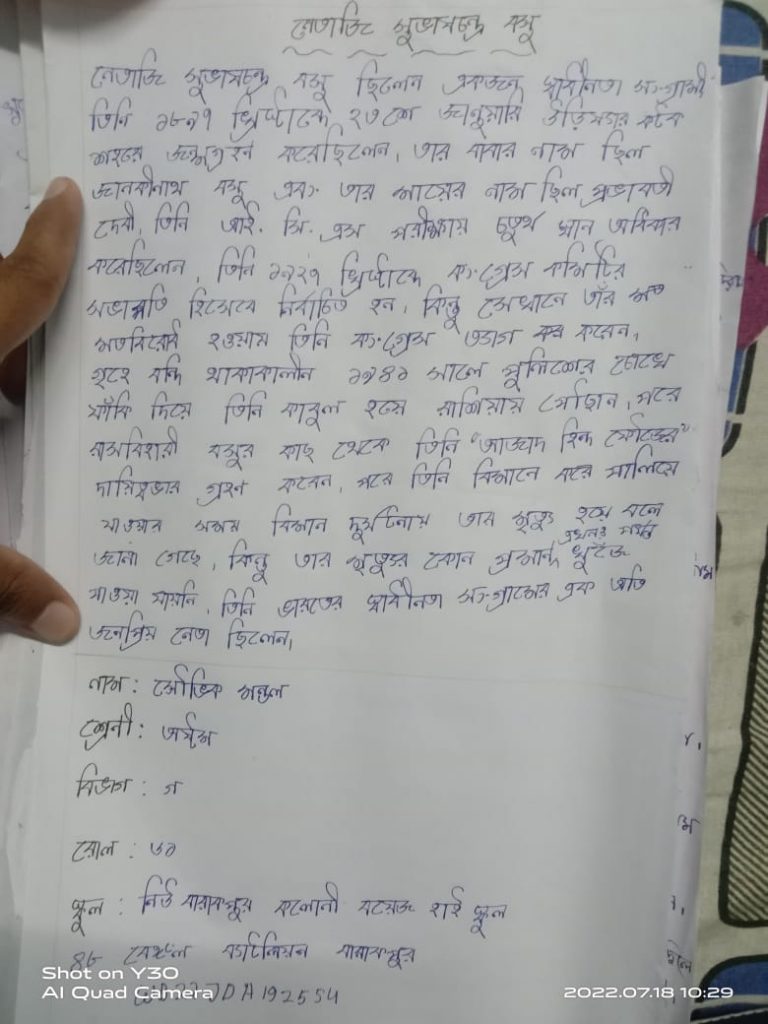 নেতাজি সুভাষচন্দ্র বসু
নেতাজি সুভাষচন্দ্র বসু ছিলেন একজন স্বাধীনতা সংগ্রামী
তিনি ১৮৯৭ খ্রিষ্টাব্দে ২৩শে জানুয়ারি উড়িষ্যার কটক
শহরে জন্মগ্রহন করেছিলেন, তার বাবার নাম ছিল
জানকীনাথ বসু এবং তার মায়ের নাম ছিল প্রভাবতী
দেবী, তিনি আই. সি. এস পরীক্ষায় চতুর্থ স্থান অধিকার
করেছিলেন, তিনি খ্রিষ্টাব্দে কংগ্রেস কমিটির
সভাপতি হিসেবে নির্বাচিত হন, কিন্তু সেখানে তাঁর মত
মতবিরোধ হওয়ায় তিনি কংগ্রেস ত্যাগ করেন,
গৃহে বন্দি থাকাকালীন ১৯৪১ সালে পুলিশের চোখে
ফাঁকি দিয়ে তিনি কাবুল হয়ে রাশিয়ায় পৌছান, পরে
রাসবিহারী বসুর কাছ থেকে তিনি "আজাদ হিন্দ ফৌজের"
দায়িত্বভার গ্রহন করেন, পরে তিনি বিমানে করে পালিয়ে
যাওয়ার সময় বিমান দুর্ঘটনায় তার মৃত্যু হয় বলে
জানা গেছে, কিন্তু তার মৃত্যুর কোন প্রমান এখনও পর্যন্ত খুঁজে
পাওয়া যায়নি, তিনি ভারতের স্বাধীনতা সংগ্রামের এক অতি
জনপ্রিয় নেতা ছিলেন,
নাম : সৌভিক মন্ডল
শ্রেনী : অষ্টম
বিভাগ : গ
রোল : ৬১
স্কুল : নিউ বারাকপুর কলোনী বয়েজ হাই স্কুল
৪৮ বেঙ্গল ব্যাটেলিয়ন বারাকপুর
Shot on Y30
AI Quad Camera
2022.07.18 10:29